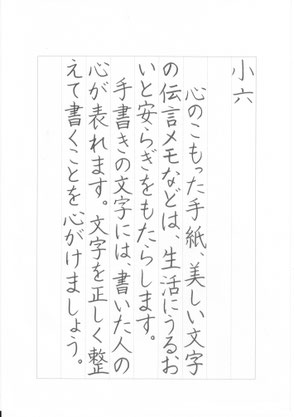 小六
心のこもった手紙、美しい文字
の伝言メモなどは、生活にうるお
いと安らぎをもたらします。
手書きの文字には、書いた人の
心が表れます。文字を正しく整
えて書くことを心がけましょう。